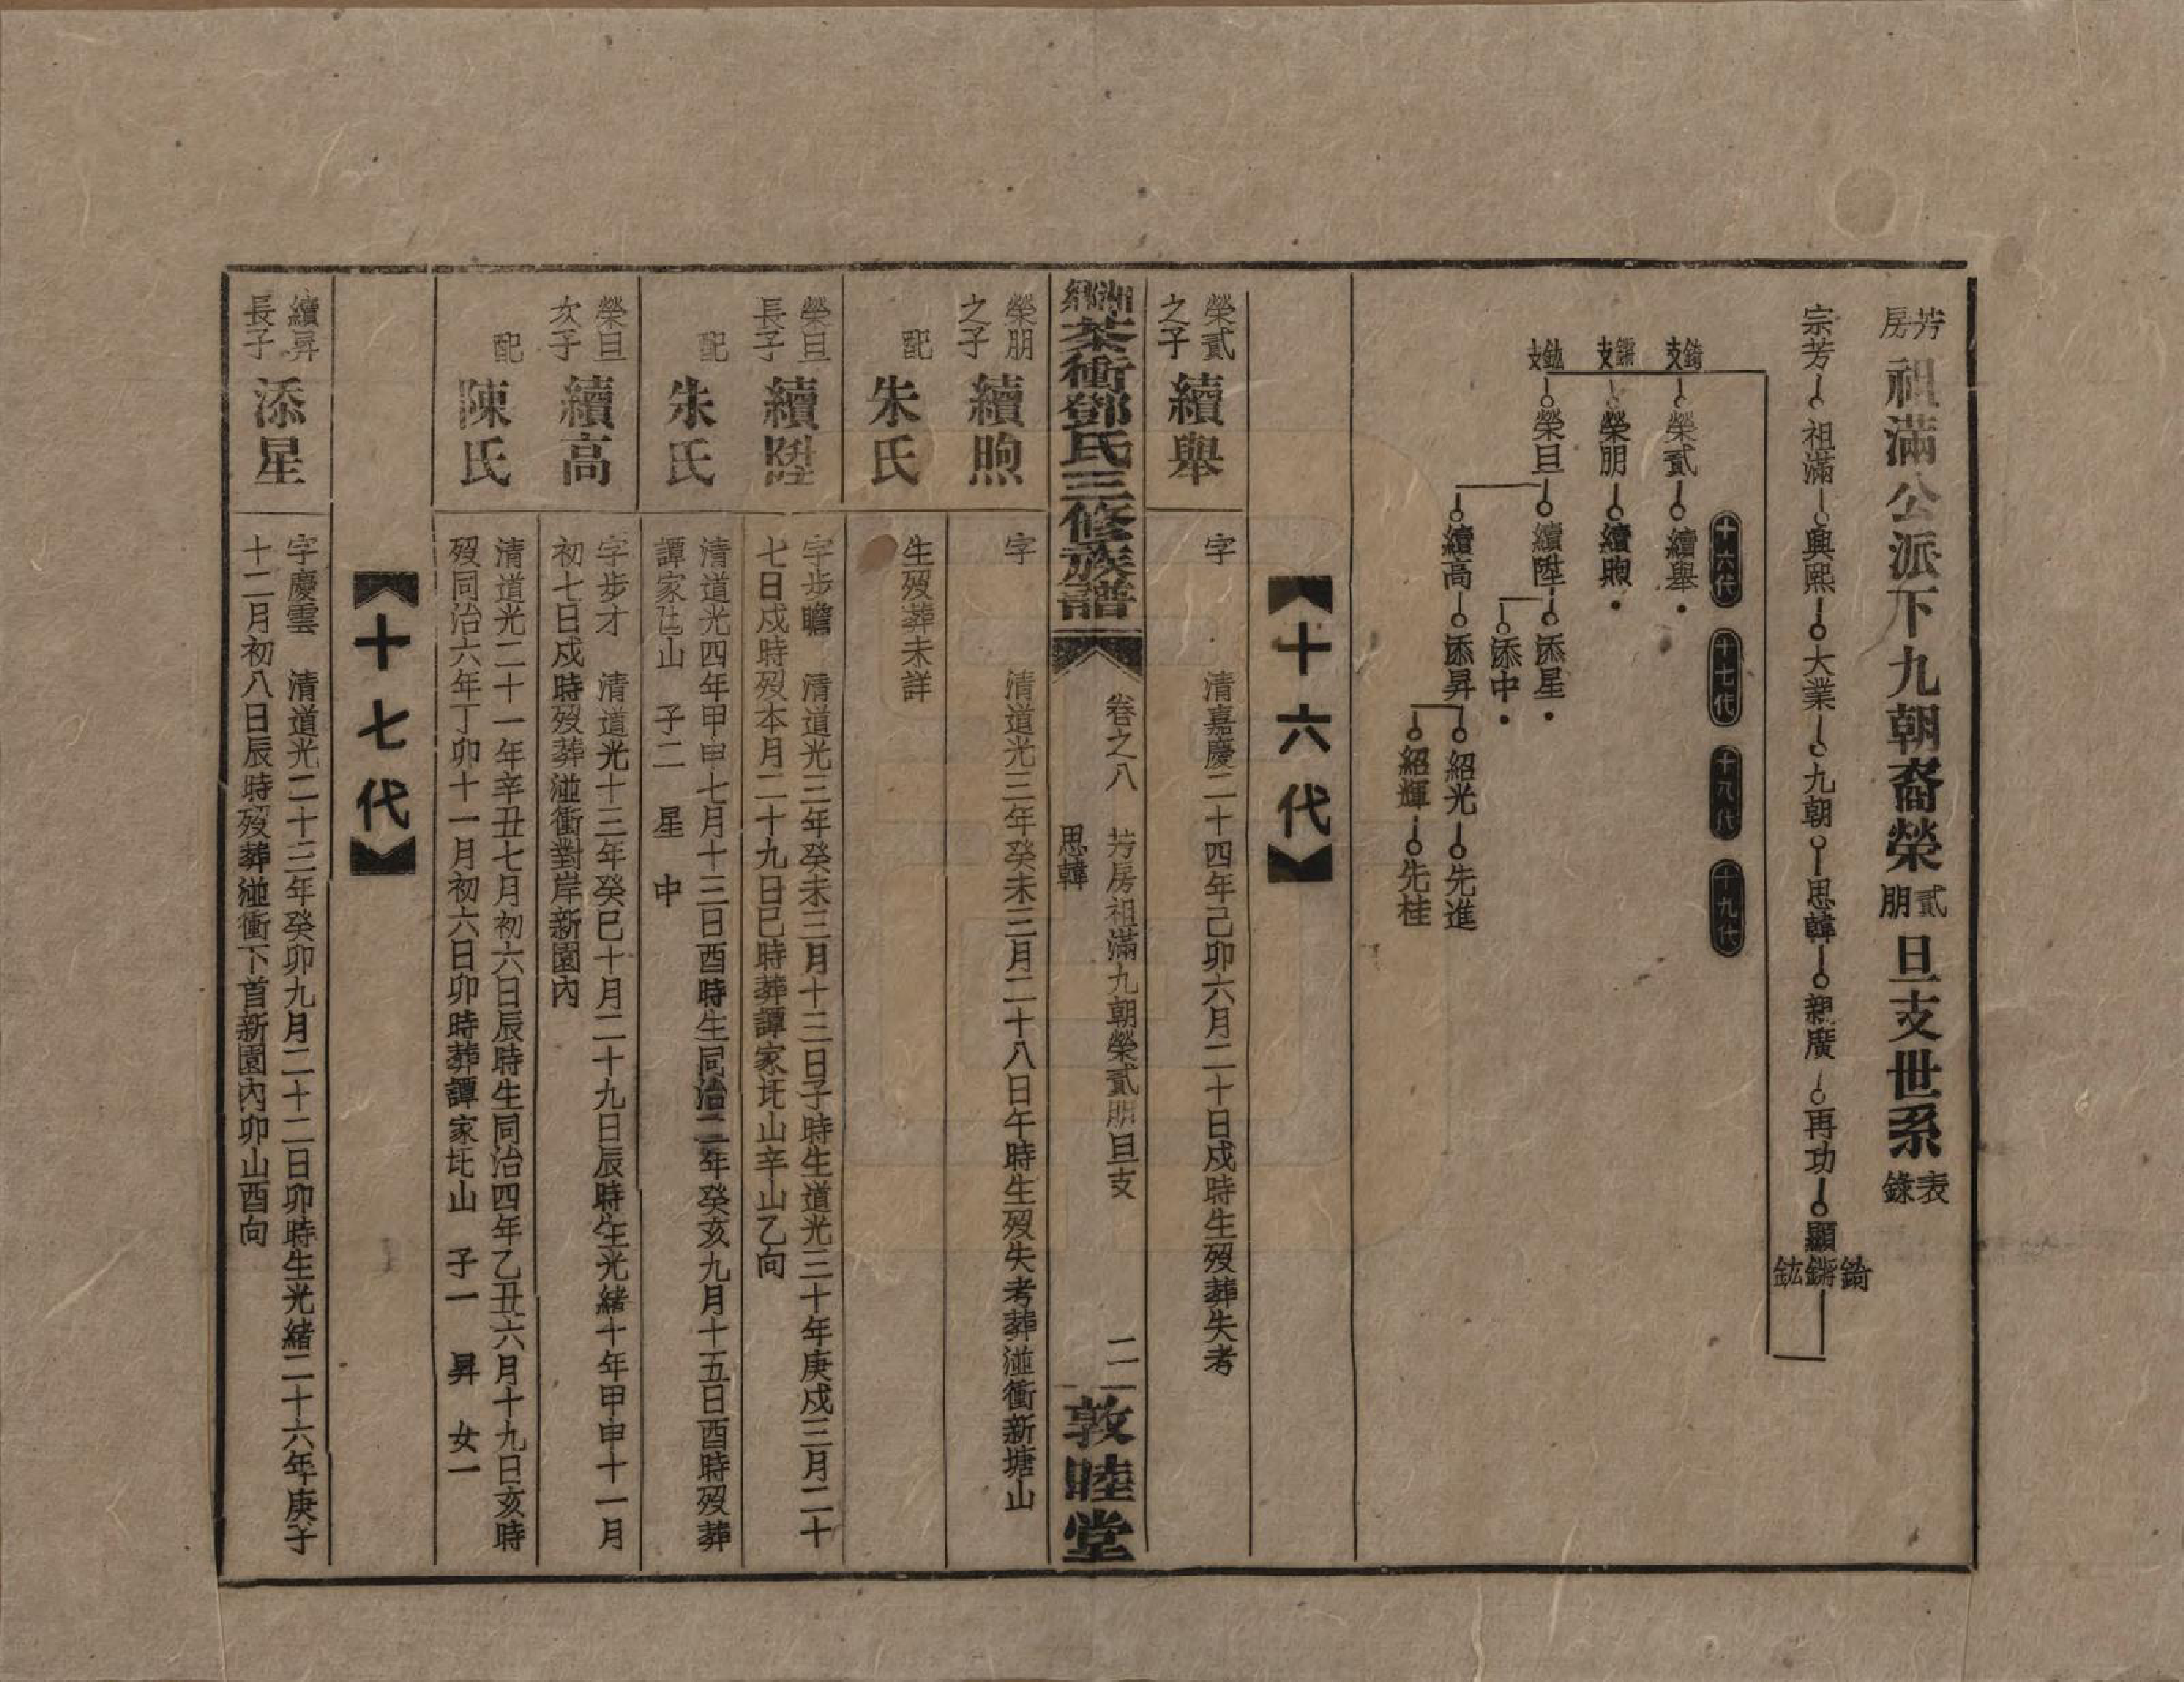 芳房祖滿公派下九朝裔榮貳朋旦支世系表錄
宗芳 祖滿 興熙 大業 九朝 思韓 親廣 再功 顯錡鏘鈜
十六代 十七代 十八代 十九代
錡支 榮貳 續舉
鏘支 榮朋 續煦
鈜支 榮旦 續陞 添星
添中
續高 添昇 紹光 先進
紹輝 先桂
十六代
榮貳之子 續舉 字 清嘉慶二十四年己卯六月二十日戍時生歿葬失考
湘鄉茶衝鄧氏三修族譜 卷之八 芳房祖滿九朝榮貳朋旦支 思韓 二 敦睦堂
榮朋之子 續煦 字 清道光三年癸未三月二十八日午時生歿失考葬湴衝新塘山
配 朱氏 生歿葬未詳
榮旦長子 續陞 字步瞻 清道光三年癸未三月十三日子時生道光三十年庚戍三月二十
七日戍時歿本月二十九日巳時葬譚家圫山辛山乙向
配 朱氏 清道光四年甲申七月十三日酉時生同治二年癸亥九月十五日酉時歿葬
譚家圫山 子二 星 中
榮旦次子 續高 字步才 清道光十三年癸巳十月二十九日辰時生光緒十年甲申十一月
初七日戍時歿葬湴衝對岸新園內
配 陳氏 清道光二十一年辛丑七月初六日辰時生同治四年乙丑六月十九日亥時
歿同治六年丁卯十一月初六日卯時葬譚家圫山 子一 昇 女一
十七代
續昇長子 添星 字慶雲 清道光二十三年癸卯九月二十二日卯時生光緒二十六年庚子
十二月初八日辰時歿葬湴衝下首新園內卯山酉向